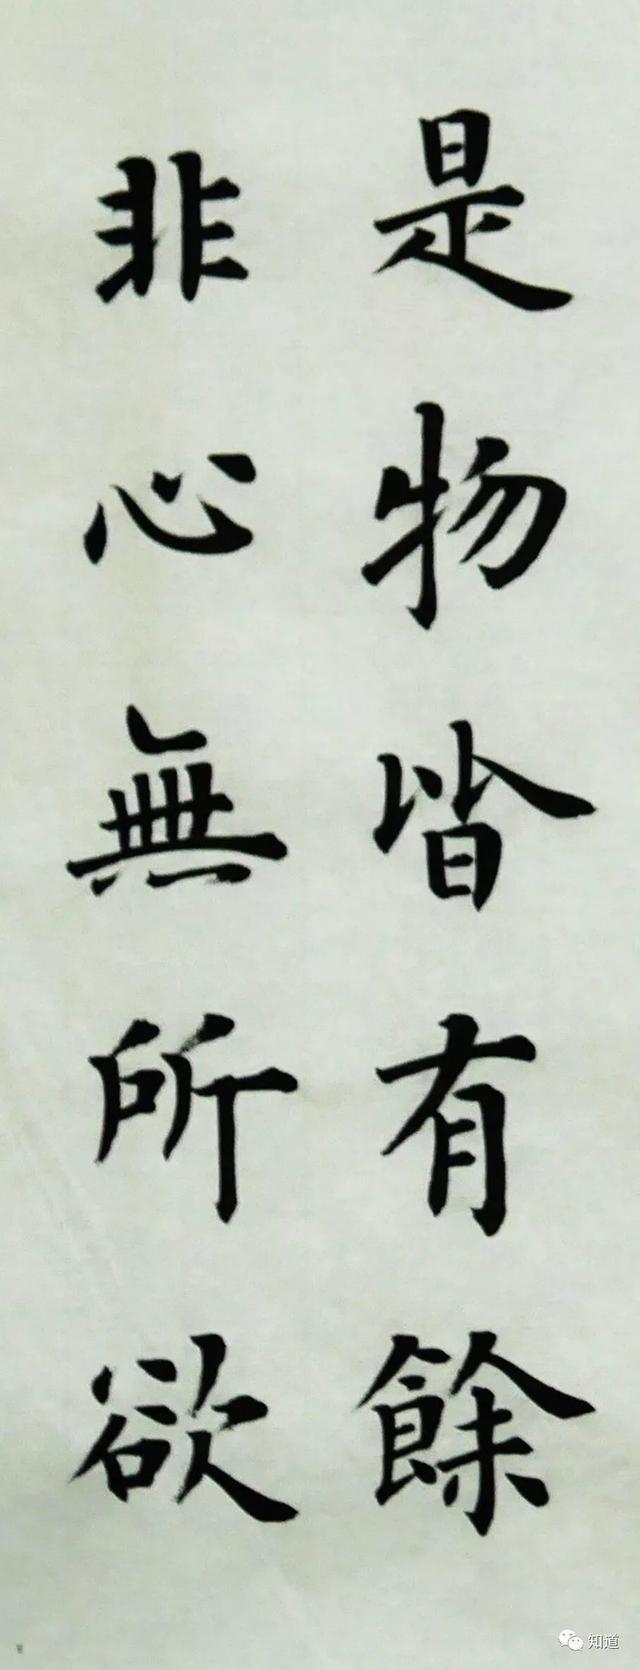 是物皆有餘
非心無所欲
知道